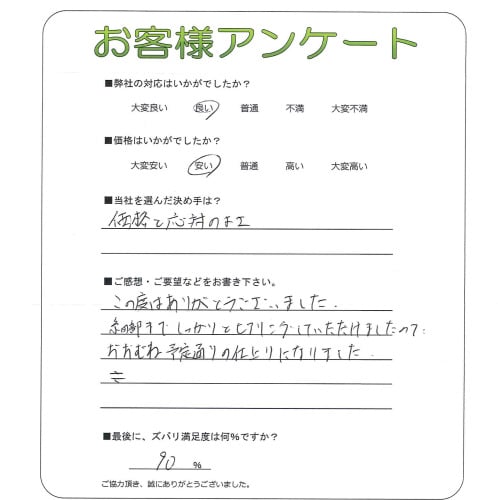 お客様アンケート
■弊社の対応はいかがでしたか?
大変良い 良い 普通 不満 大変不満
■価格はいかがでしたか?
大変安い 安い 普通 高い 大変高い
■当社を選んだ決め手は?
価格と応対のよさ
■ご感想・ご要望などをお書き下さい。
この度はありがとうございました.
細部までしっかりとヒアリングしていただけましたので
おおむね予定通りの仕上りになりました.
■最後に、ズバリ満足度は何%ですか?
90 %
ご協力頂き、誠にありがとうございました。